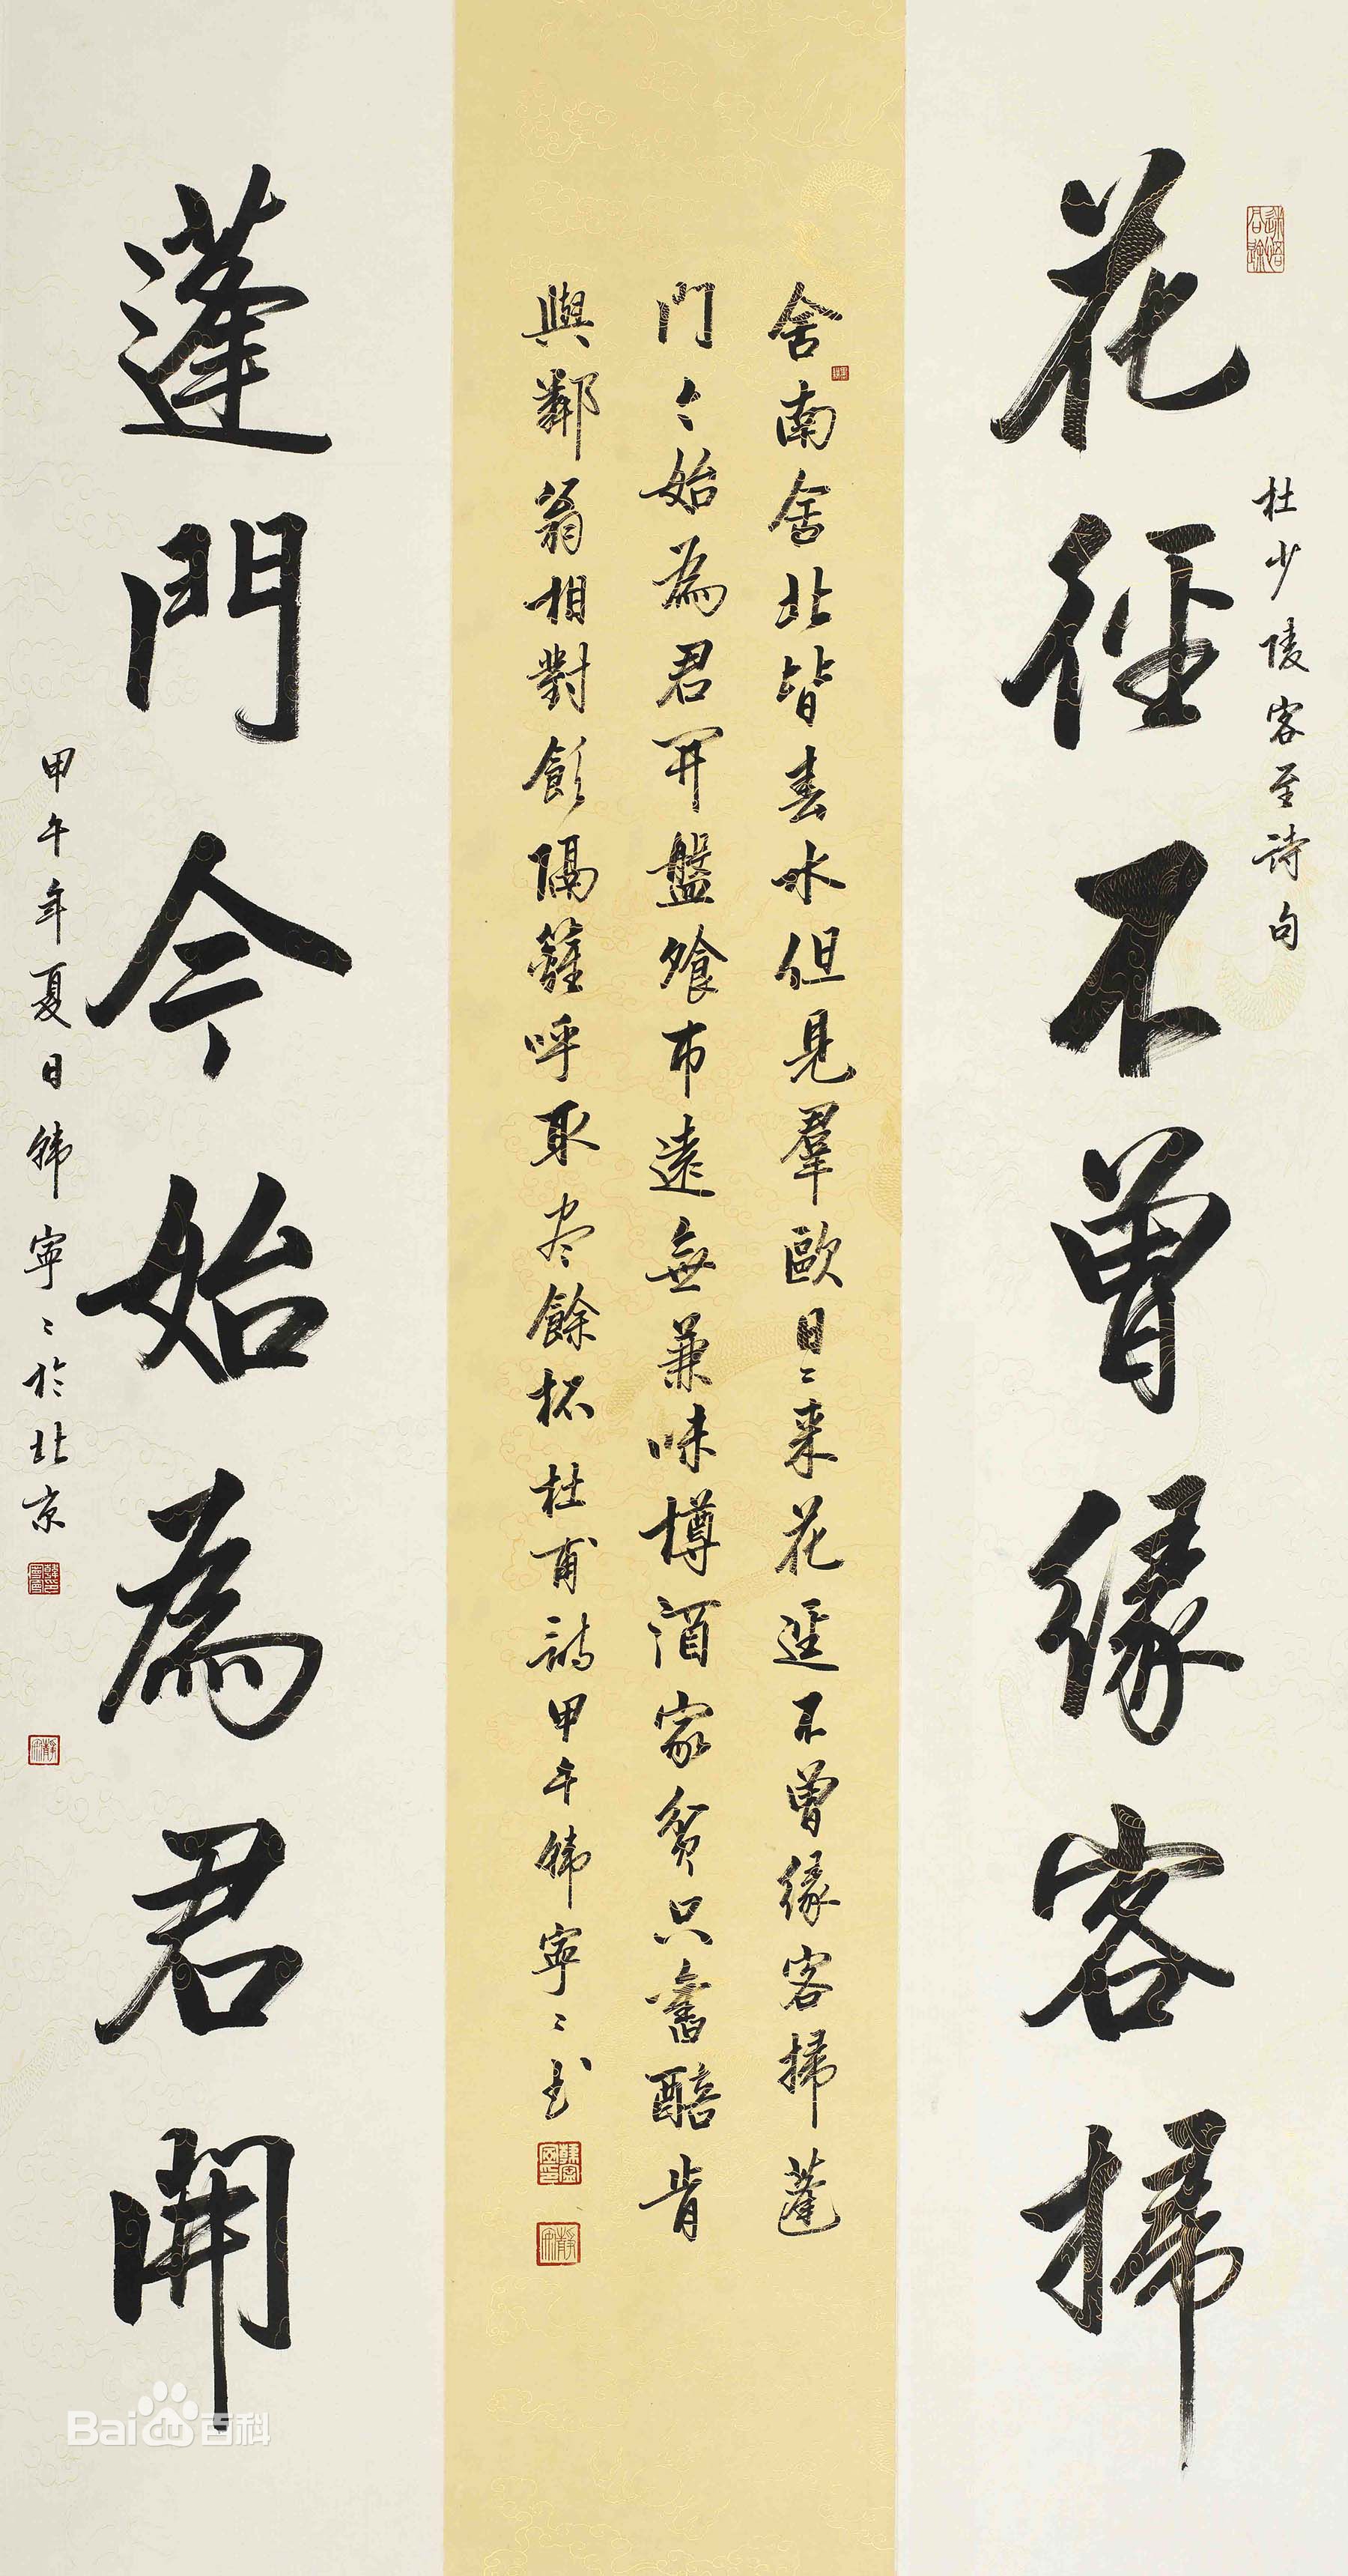 花徑不曾緣客掃
杜少陵客至詩句
舍南舍北皆春水但見羣鷗日〻来花逕不曾緣客掃蓬
門〻始為君開盤飱市遠無兼味樽酒家貧只舊醅肯
與鄰翁相對飲隔籬呼取尽餘杯杜甫詩甲午韩寧〻书
蓬門今始為君開
甲午年夏日韩寧〻於北京
Bai百科